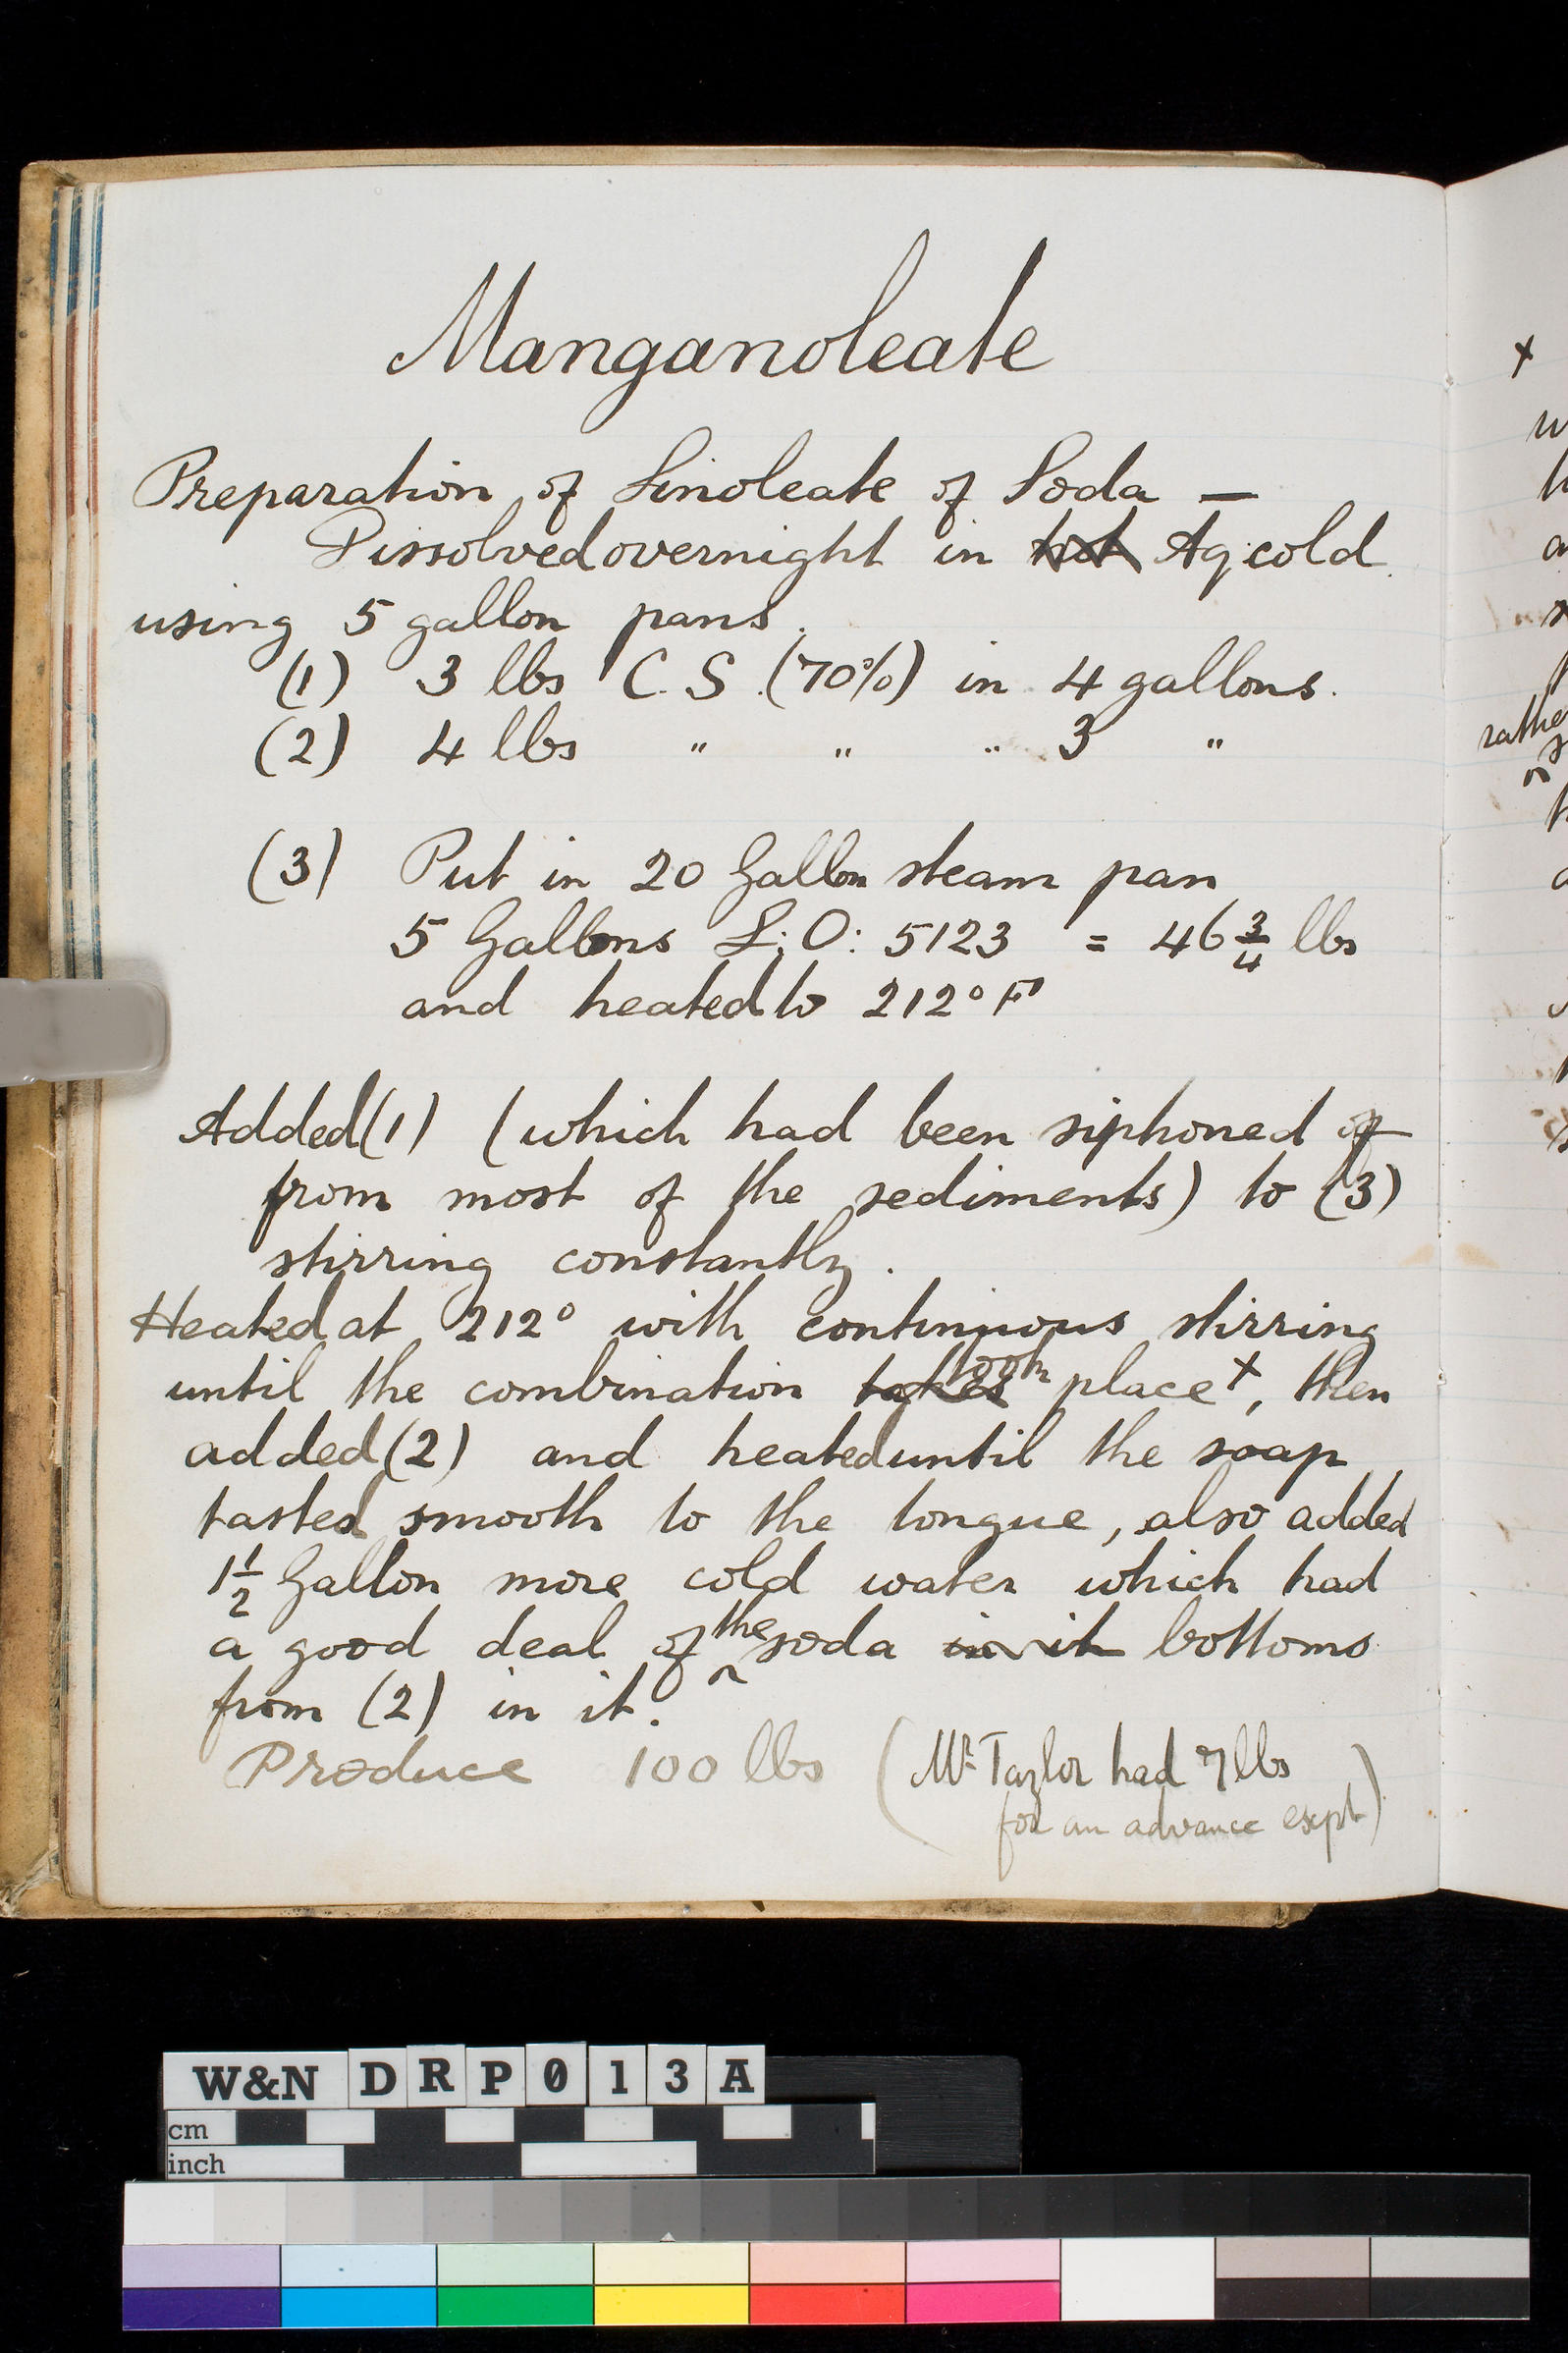 Manganoleate
Preparation of Linoleate of Soda —
Dissolved overnight in hot Aq: cold
using 5 gallon pans.
(1) 3 lbs C.S. (70%) in 4 gallons.
(2) 4 lbs " " " 3 "
(3) Put in 20 Gallon steam pan
5 Gallons L:O: 5123 = 46 3/4 lbs
and heated to 212° F
Added (1) (which had been siphoned off
from most of the sediments) to (3)
stirring constantly.
Heated at 212° with continuous stirring
until the combination takes took place +, then
added (2) and heated until the soap
tasted smooth to the tongue, also added
1 1/2 Gallon more cold water which had
a good deal of the soda in it bottoms
from (2) in it.
Produce 100 lbs (Mr Taylor had 7 lbs
for an advance expt)
+
rathe
W&N DRP013A
cm
inch